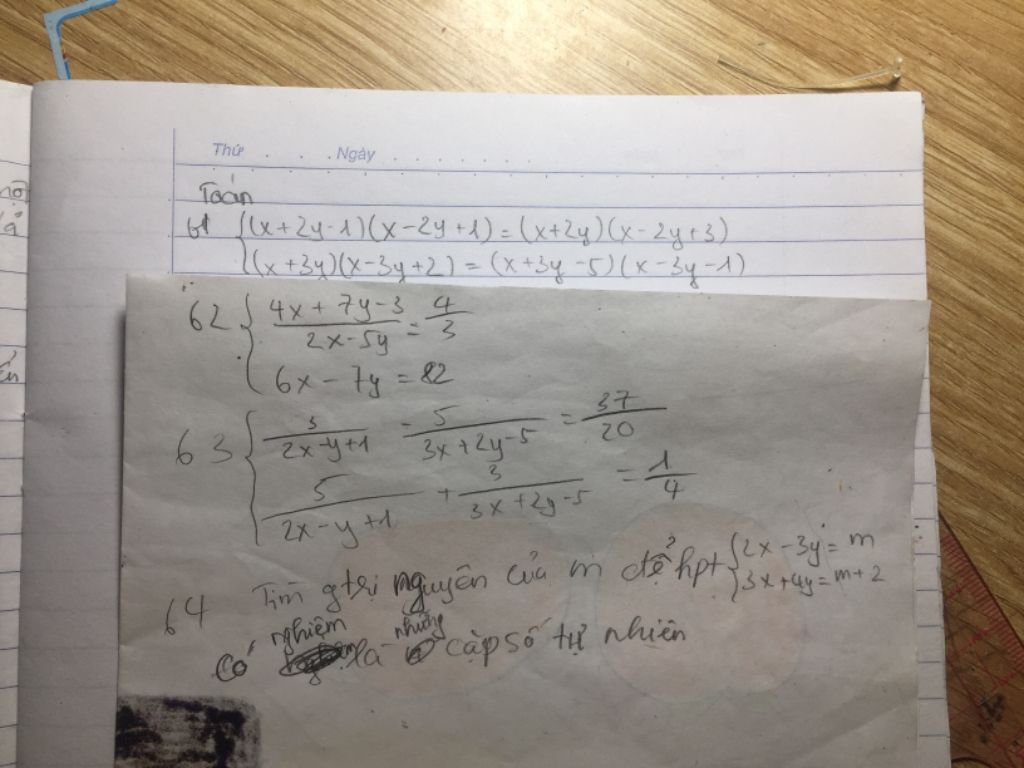 Thứ . . . Ngày . . . . . . . . .
Toán
61 {(x+2y-1)(x-2y+1) = (x+2y)(x-2y+3)
{(x+3y)(x-3y+2) = (x+3y-5)(x-3y-1)
62 { (4x+7y-3)/(2x-5y) = 4/3
{ 6x-7y = 82
63 { 3/(2x-y+1) - 5/(3x+2y-5) = 37/20
{ 5/(2x-y+1) + 3/(3x+2y-5) = 1/4
64 Tìm gtrị nguyên của m để hpt {2x-3y = m
{3x+4y = m+2
có nghiệm là những cặp số tự nhiên